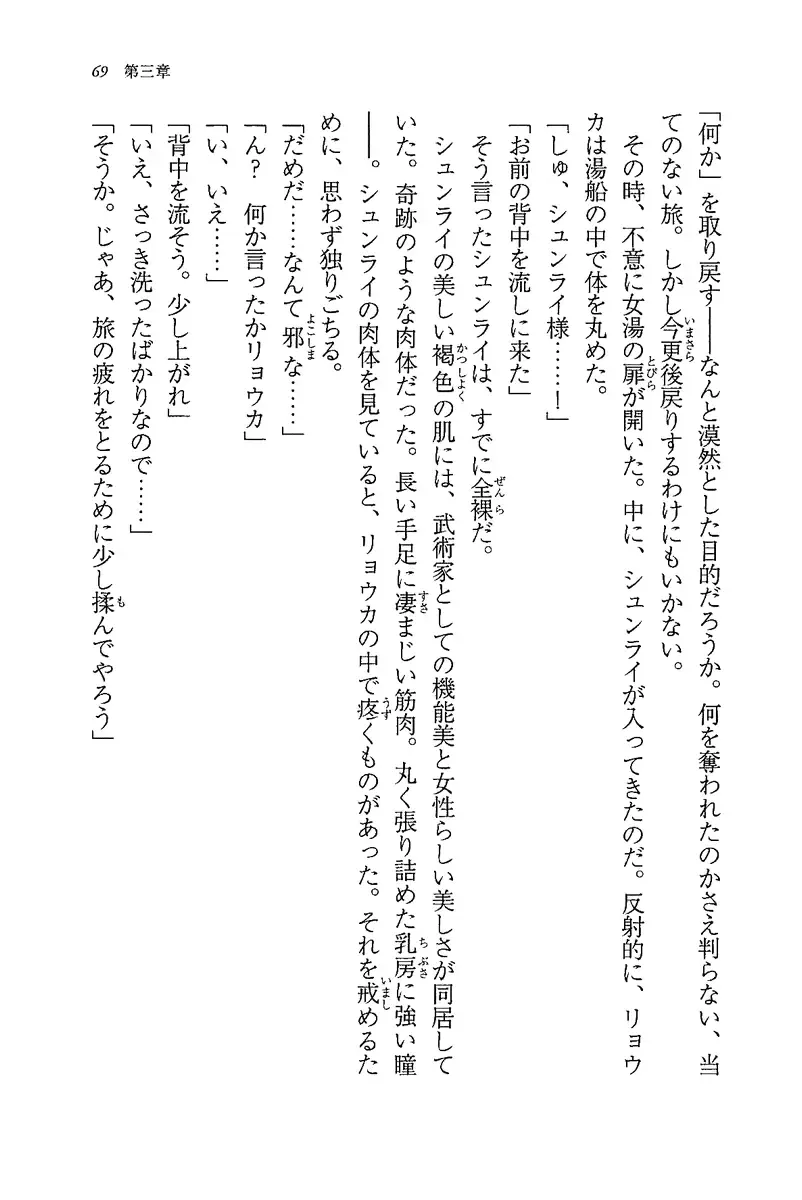 69 第三章
「何か」を取り戻す――なんと漠然とした目的だろうか。何を奪われたのかさえ判らない、当
てのない旅。しかし今更後戻りするわけにもいかない。
その時、不意に女湯の扉が開いた。中に、シュンライが入ってきたのだ。反射的に、リョウ
カは湯船の中で体を丸めた。
「しゅ、シュンライ様……！」
「お前の背中を流しに来た」
そう言ったシュンライは、すでに全裸だ。
シュンライの美しい褐色の肌には、武術家としての機能美と女性らしい美しさが同居して
いた。奇跡のような肉体だった。長い手足に凄まじい筋肉。丸く張り詰めた乳房に強い瞳
――。シュンライの肉体を見ていると、リョウカの中で疼くものがあった。それを戒めるた
めに、思わず独りごちる。
「だめだ……なんて邪な……」
「ん？　何か言ったかリョウカ」
「い、いえ……」
「背中を流そう。少し上がれ」
「いえ、さっき洗ったばかりなので……」
「そうか。じゃあ、旅の疲れをとるために少し揉んでやろう」